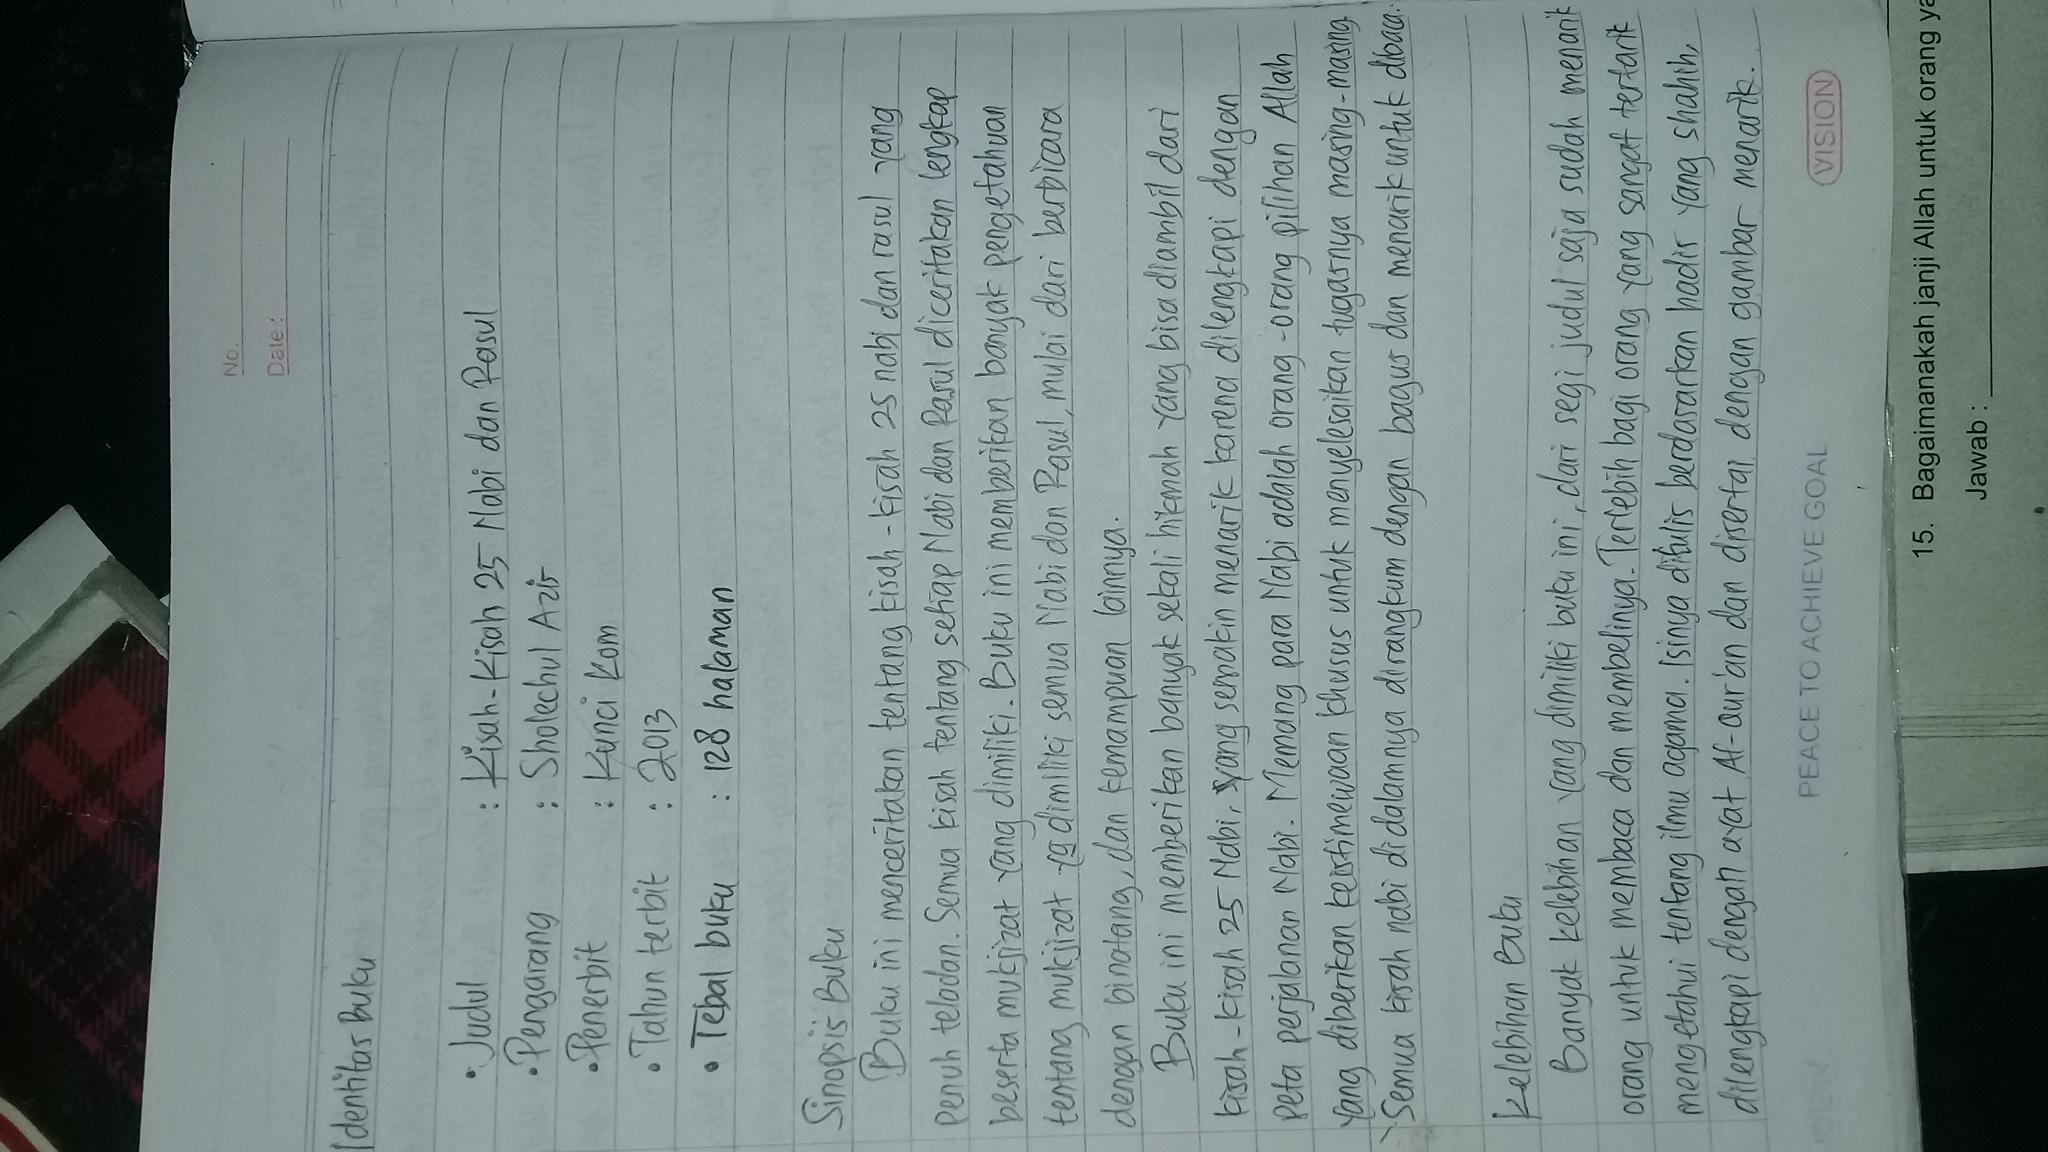 No.
Date:
Identitas Buku
• Judul : Kisah-Kisah 25 Nabi dan Rasul
• Pengarang : Sholechul Azis
• Penerbit : Kunci Kom
• Tahun terbit : 2013
• Tebal buku : 128 halaman
Sinopsis Buku
Buku ini menceritakan tentang kisah-kisah 25 nabi dan rasul yang
penuh teladan. Semua kisah tentang setiap Nabi dan Rasul diceritakan lengkap
beserta mukjizat yang dimiliki. Buku ini memberikan banyak pengetahuan
tentang mukjizat yg dimiliki semua Nabi dan Rasul, mulai dari berbicara
dengan binatang, dan kemampuan lainnya.
Buku ini memberikan banyak sekali hikmah yang bisa diambil dari
kisah-kisah 25 Nabi, yang semakin menarik karena dilengkapi dengan
peta perjalanan Nabi. Memang para Nabi adalah orang-orang pilihan Allah
yang diberikan keistimewaan khusus untuk menyelesaikan tugasnya masing-masing.
Semua kisah nabi di dalamnya dirangkum dengan bagus dan menarik untuk dibaca.
Kelebihan Buku
Banyak kelebihan yang dimiliki buku ini, dari segi judul saja sudah menarik
orang untuk membaca dan membelinya. Terlebih bagi orang yang sangat tertarik
mengetahui tentang ilmu agama. Isinya ditulis berdasarkan hadis yang shahih,
dilengkapi dengan ayat Al-Qur'an dan disertai dengan gambar menarik.
PEACE TO ACHIEVE GOAL
VISION
15. Bagaimanakah janji Allah untuk orang
Jawab :